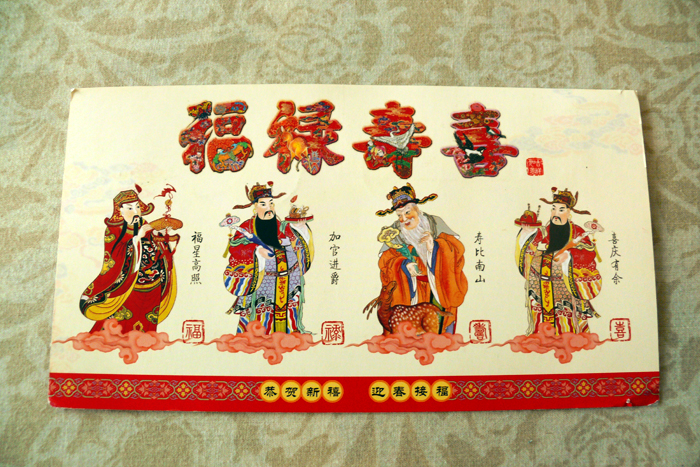 福禄寿喜
吉祥如意
福星高照
加官进爵
寿比南山
喜庆有余
福
禄
寿
喜
恭贺新禧 迎春接福